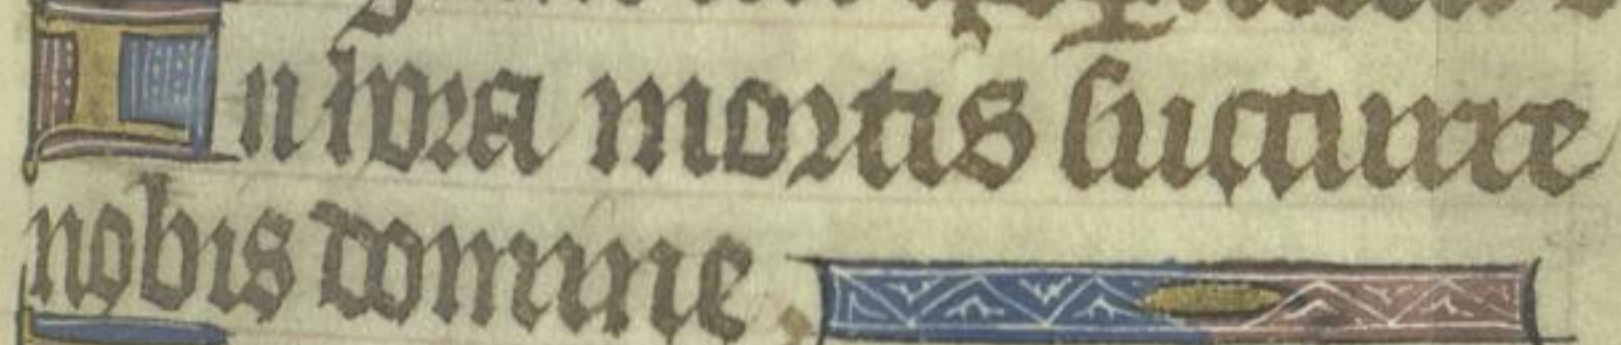 In hora mortis succurre
nobis domine.